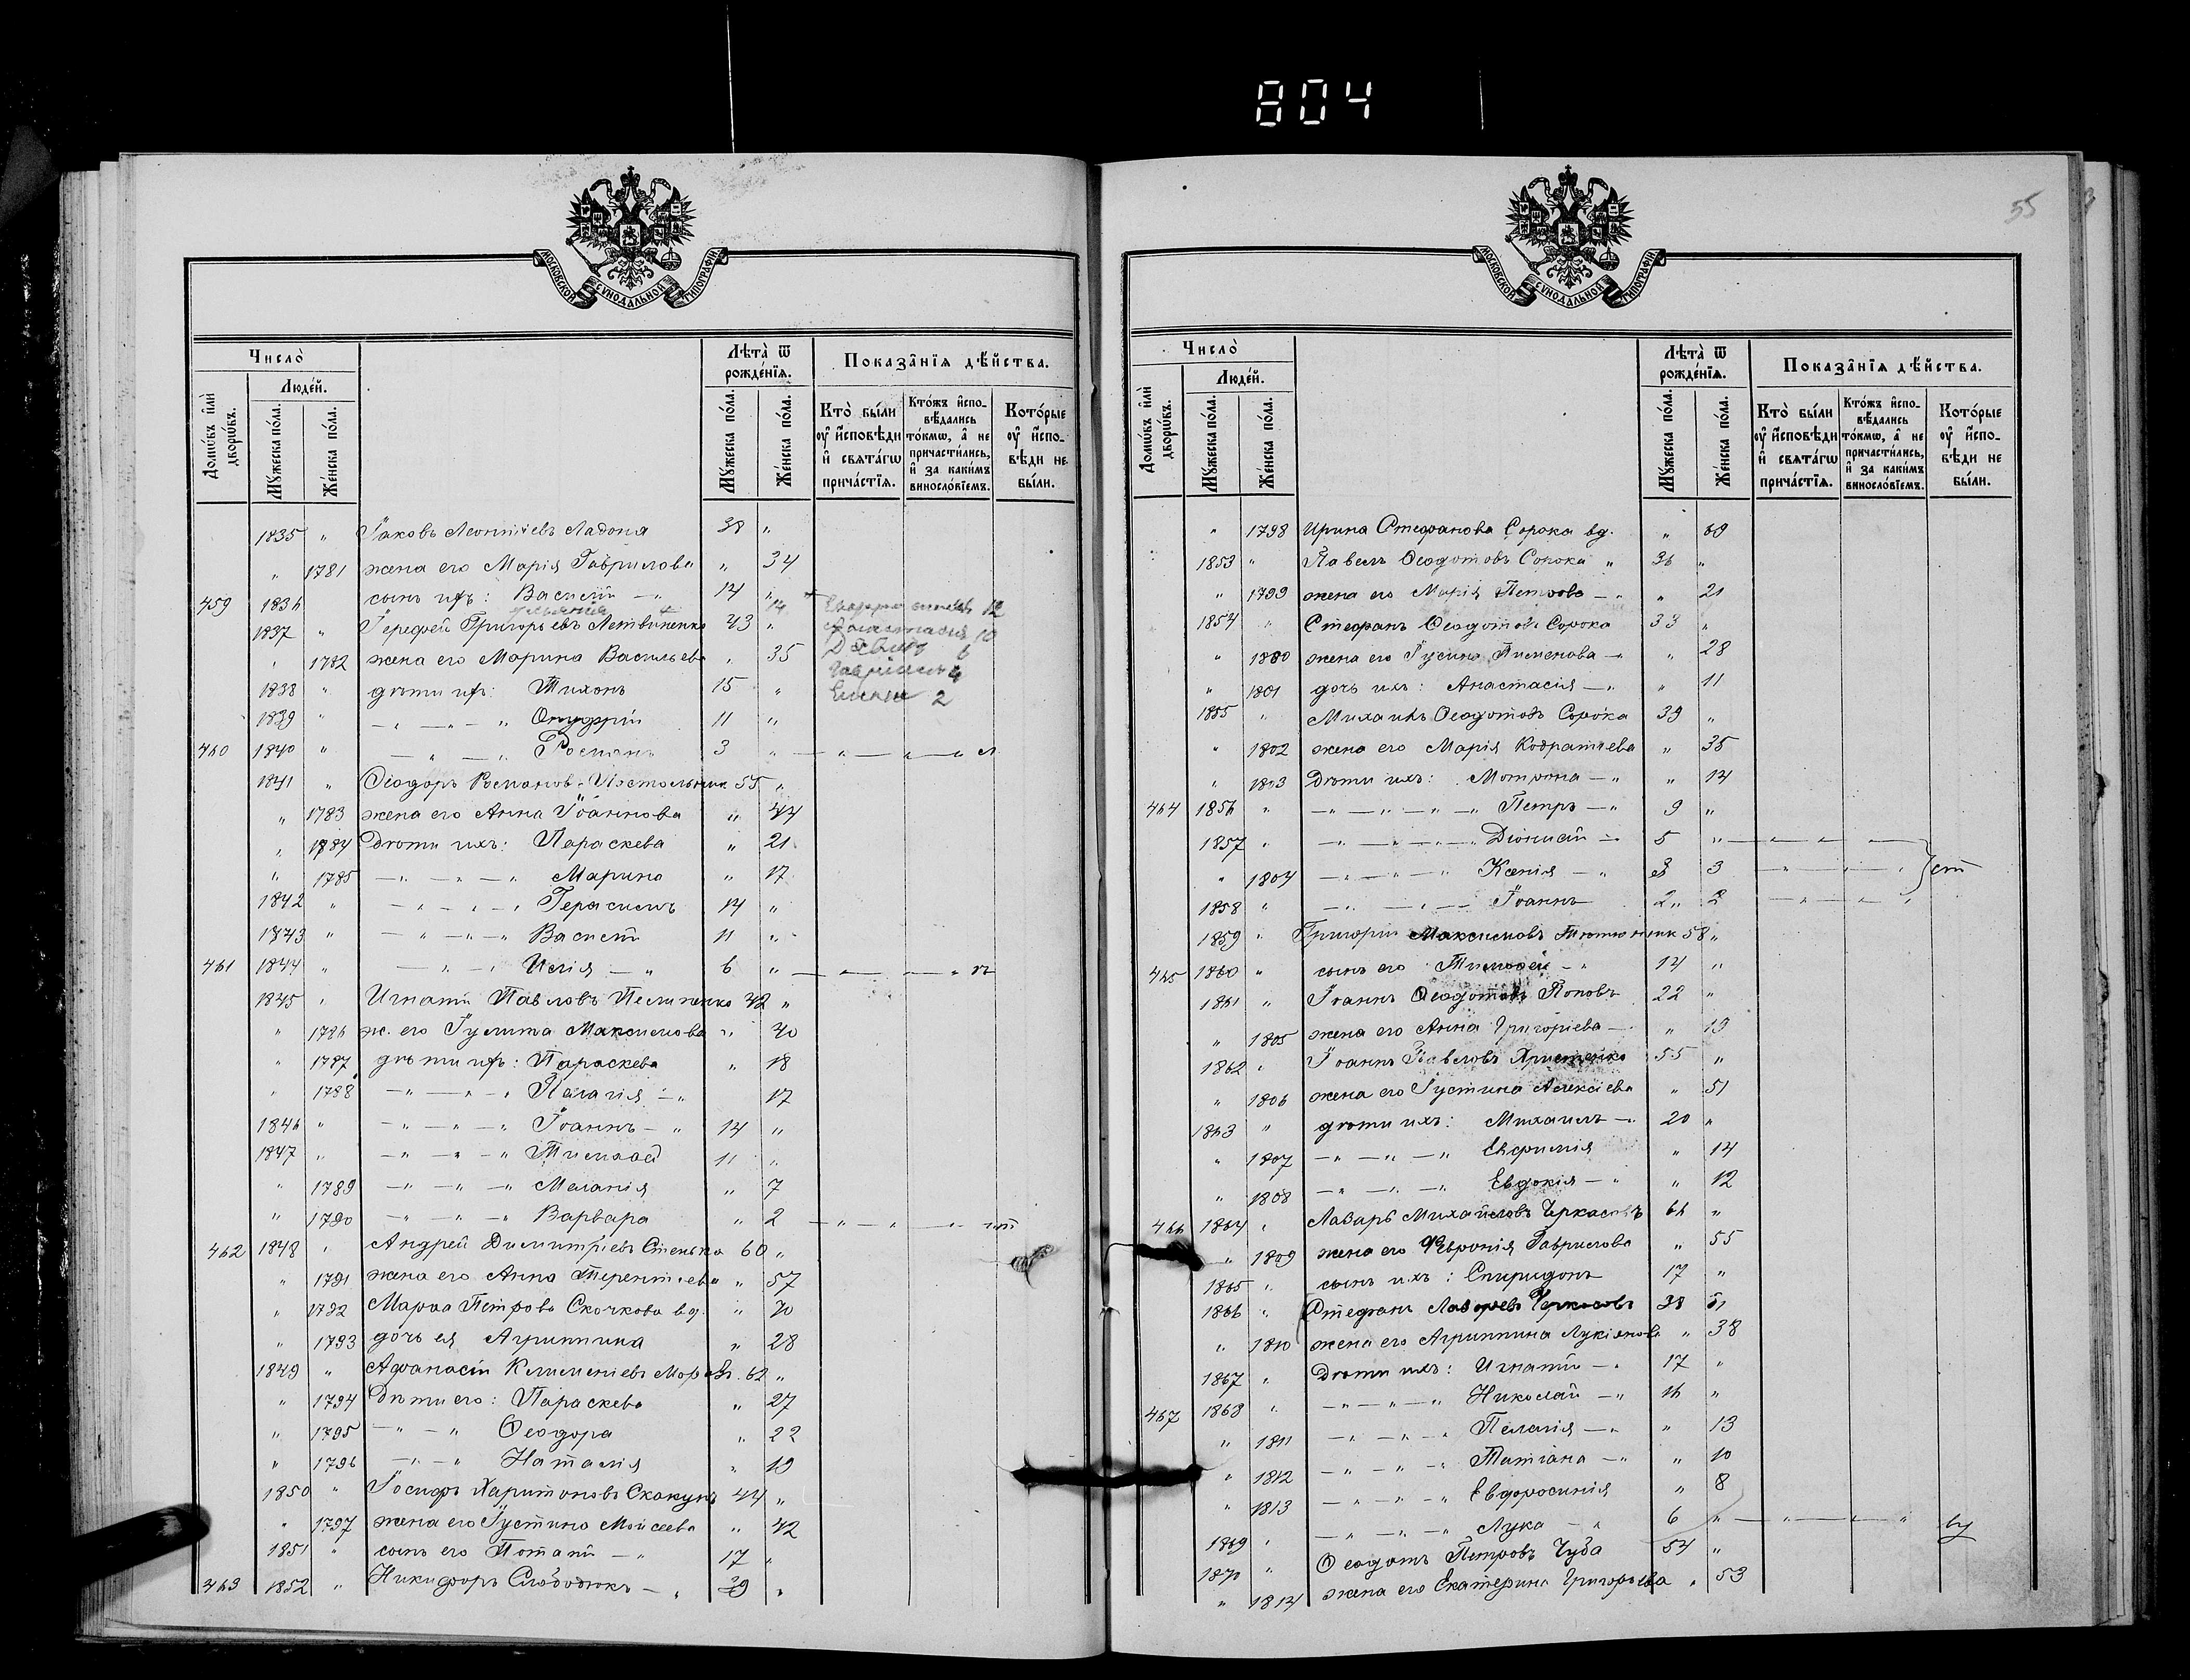 804
МОСКОВСКОЙ СѴНОДАЛЬНОЙ ТИПОГРАФІИ
Число̀
Люде́й.
Домѡ́въ и҆лѝ дворѡ́въ.
Мꙋ́жеска по́ла.
Же́нска по́ла.
Лѣ́та ѿ рожде́нїѧ.
Мꙋ́жеска по́ла.
Же́нска по́ла.
Показа̑нїѧ дѣ́йства.
Кто̀ бы́ли ᲂу҆ и҆сповѣ́ди и҆ свѧта́гѡ прича́стїѧ.
Кто́жъ и҆сповѣ́дались то́кмѡ, а҆ не причасти́лись, и҆ за каки́мъ виносло́вїемъ.
Кото́рые ᲂу҆ и҆сповѣ́ди не бы́ли.
1835 " Іаковъ Леонтіевъ Ладоня 38 "
" 1781 жена его Марія Гаврилова " 34
459 1836 сынъ ихъ: Василій — " 14 "
1837 " Григорьевъ Литвиненко 43 "
" 1782 жена его Марина Васильева " 35 Давидъ 6
1838 " дѣти ихъ: Тихонъ 15 " 2
1839 " — " — " — " Онуфрій 11 "
460 1840 " — " — " Романъ 3 " — " — " — "
1841 " Ѳеодоръ Романовъ 55 "
" 1783 жена его Анна Іоаннова " 44
" 1784 Дѣти ихъ: Параскева " 21
" 1785 — " — " — " Марина " 17
1842 " — " — " — " Герасимъ 14 "
1843 " — " — " — " Василій 11 "
461 1844 " — " — " Илія — " 6 " — " — " — "
1845 " Игнатій Павловъ Пелипенко 42 "
" 1786 ж. его Іулита Максимова " 40
" 1787 дѣти ихъ: Параскева " 18
" 1788 — " — " — " Пелагія — " 17
1846 " — " — " — " Іоаннъ — " 14 "
1847 " — " — " — " Тимоѳей 11 "
" 1789 — " — " — " Меланія " 7
" 1790 — " — " — " Варвара " 2 — " — " — " — "
462 1848 " Андрей Димитріевъ Стенько 60 "
" 1791 жена его Анна Терентіева " 57
" 1792 Марѳа Петрова Скочкова вд. " 70
" 1793 дочь ея Агриппина " 28
1849 " Аѳанасій Климентіевъ 62 "
" 1794 Дѣти его: Параскева " 27
" 1795 — " — " Ѳеодора " 22
" 1796 — " — " Наталія " 19
1850 " Іосифъ Харитоновъ Скакунъ 44 "
" 1797 жена его Іустина Моисеева " 42
1851 " сынъ его Потапій — " 17 "
463 1852 " Никифоръ Слободюкъ — " 39 "
55
МОСКОВСКОЙ СѴНОДАЛЬНОЙ ТИПОГРАФІИ
Число̀
Люде́й.
Домѡ́въ и҆лѝ дворѡ́въ.
Мꙋ́жеска по́ла.
Же́нска по́ла.
Лѣ́та ѿ рожде́нїѧ.
Мꙋ́жеска по́ла.
Же́нска по́ла.
Показа̑нїѧ дѣ́йства.
Кто̀ бы́ли ᲂу҆ и҆сповѣ́ди и҆ свѧта́гѡ прича́стїѧ.
Кто́жъ и҆сповѣ́дались то́кмѡ, а҆ не причасти́лись, и҆ за каки́мъ виносло́вїемъ.
Кото́рые ᲂу҆ и҆сповѣ́ди не бы́ли.
" 1798 Ирина Стефанова Сорока вд. " 60
1853 " Павелъ Ѳеодотовъ Сорока " 36 "
" 1799 жена его Марія Петрова — " " 21
1854 " Стефанъ Ѳеодотовъ Сорока 33 "
" 1800 жена его Пименова — " " 28
" 1801 дочь ихъ: Анастасія — " " 11
1855 " Михаилъ Ѳеодотовъ Сорока 39 "
" 1802 жена его Марія Кодратіева " 35
" 1803 Дѣти ихъ: Мотрона — " " 14
464 1856 " — " — " — " — " Петръ — " 9 "
1857 " — " — " — " Діонисій — " 5 " — " — " — "
" 1804 — " — " — " Ксенія — " 3 — " — " — "
1858 " — " — " — Іоаннъ 2 " — " — "
1859 " Григорій Максимовъ Тютюнник 58 "
465 1860 " сынъ его Тимоѳей — " 14 "
1861 " Іоаннъ Ѳеодотовъ Поповъ 22 "
" 1805 жена его Анна Григоріева — " " 19
1862 " Іоаннъ Павловъ 55 "
" 1806 жена его Іустина Алексіева " 51
1863 " дѣти ихъ: Михаилъ — " 20 "
" 1807 — " — " — " Евфимія " 14
" 1808 — " — " — " Евдокія — " " 12
466 1864 " Лазарь Михайловъ Черкасовъ 66 "
" 1809 жена его Февронія Гаврилова " 55
1865 " сынъ ихъ: Спиридонъ 17 "
1866 " Стефанъ Лазаревъ Черкасовъ 38
" 1810 жена его Агриппина Лукіанова " 38
1867 " Дѣти ихъ: Игнатій — " 17 "
467 1868 " — " — " — " Николай — " 16 "
" 1811 — " — " — " Пелагія — " " 13
" 1812 — " — " — " Татіана — " " 10
" 1813 — " — " — " Евфросинія " 8
1869 " — " — " — " Лука — " 6 " — " — " — "
1870 " Ѳеодотъ Петровъ Чуба 54 "
" 1814 жена его Екатерина Григорьева " 53